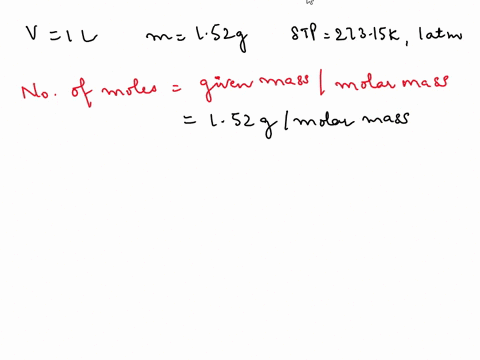 V = 1 L m = 1.52g STP = 273.15K, 1atm
No. of moles = given mass / molar mass
= 1.52 g / molar mass